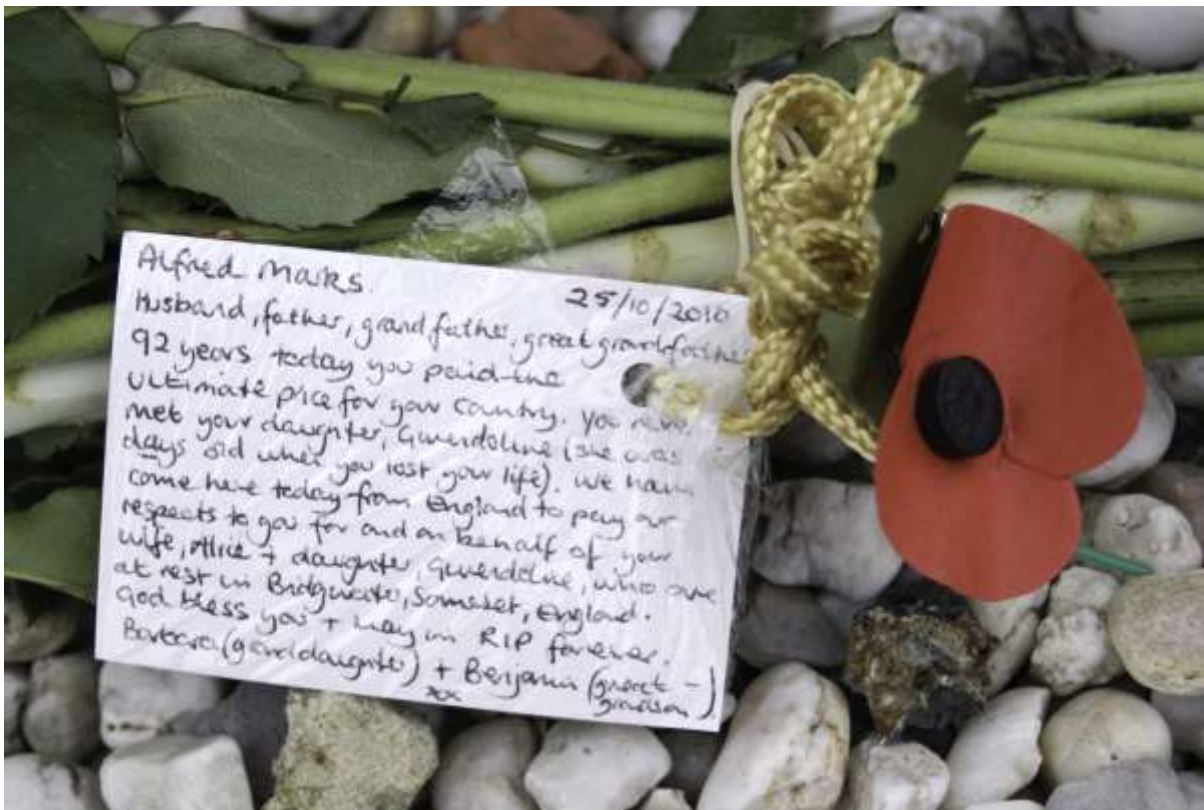 Alfred Marks.
25/10/2010
Husband, father, grandfather, great grandfather
92 years today you paid the
ultimate price for your country. You never
met your daughter, Gwendoline (she was
days old when you lost your life). We have
come here today from England to pay our
respects to you for and on behalf of your
wife, Alice + daughter, Gwendoline, who are
at rest in Bridgwater, Somerset, England.
God bless you + may you RIP forever.
Barbara (granddaughter) + Benjamin (great-
xx grandson).